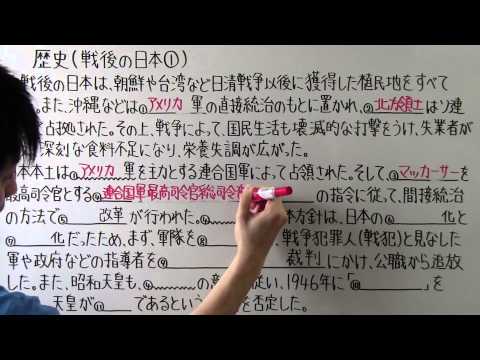 歴史(戦後の日本①)
戦後の日本は、朝鮮や台湾など日清戦争以後に獲得した植民地をすべて
。また、沖縄などは アメリカ 軍の直接統治のもとに置かれ、北方領土はソ連
て占拠された。その上、戦争によって、国民生活も壊滅的な打撃をうけ、失業者が
深刻な食料不足になり、栄養失調が広がった。
本本土は アメリカ 軍を主力とする連合国軍によって占領された。そして マッカーサーを
最高司令官とする 連合国軍最高司令官総司令 の指令に従って、間接統治
の方法で 改革 が行われた。 本方針は、日本の 化と
化だったため、まず、軍隊を 、戦争犯罪人(戦犯)と見なした
軍や政府などの指導者を 裁判 にかけ、公職から追放
した。また、昭和天皇も、 の意 従い、1946年に「 」を
天皇が であるという を否定した。